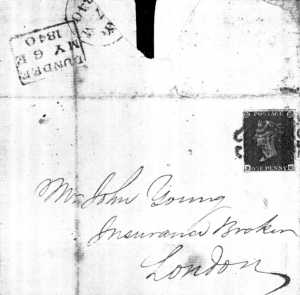 1840
DUNDEE
MY 6 E
1840
POSTAGE
ONE PENNY
Mr John Young
Insurance Broker
London